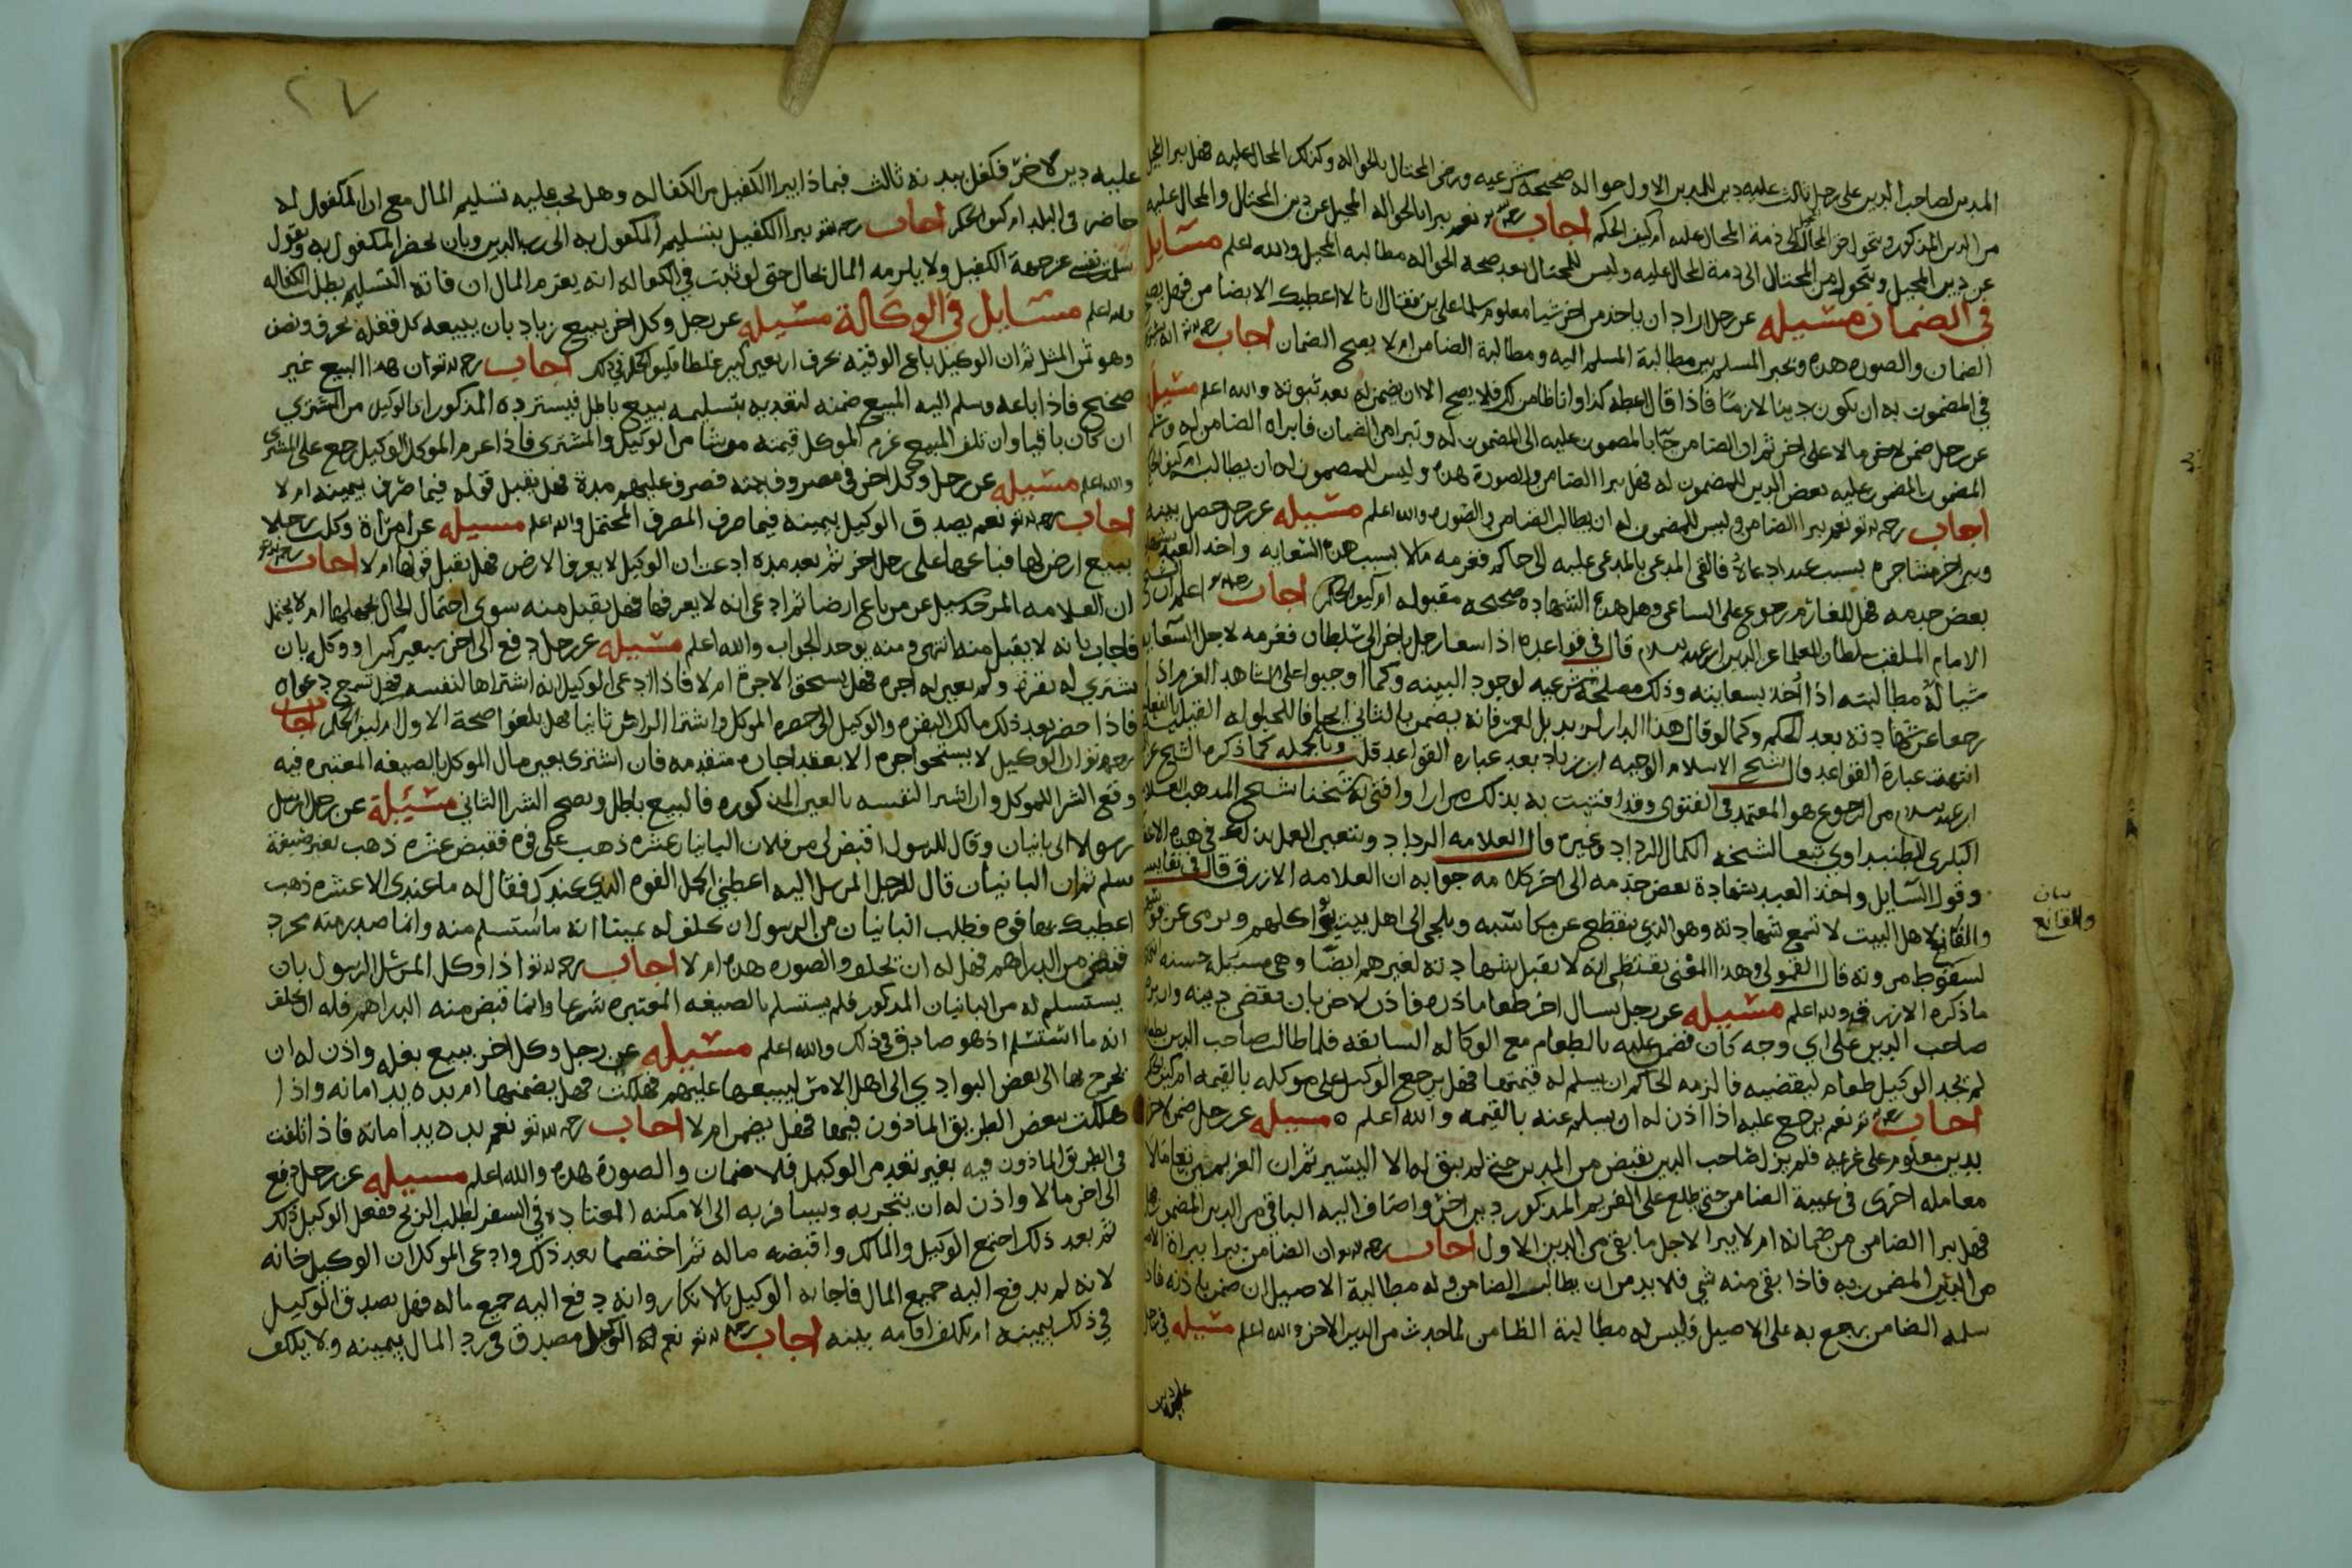 المدين لصاحب الدين على رجل ثالث عليه دين للمدين الاول حواله صحيحة شرعيه ورضي المحتال بالحواله وكذلك المحال عليه فهل يبرا المحيل
من الدين المذكور ويتحول حق المحتال الى ذمة المحال عليه ام كيف الحكم اجاب رحمه الله نعم يبرا بالحواله المحيل عن دين المحتال والمحال عليه
عن دين المحيل ويتحول حق المحتال الى ذمة المحال عليه وليس للمحتال بعد صحة الحواله مطالبه المحيل والله اعلم مسايل
في الضمان مسيله عن رجل اراد ان ياخذ من اخر شيا معلوم سلما على بن فقال انا لا اعطيك الا بضامن فهل يصح
الضمان والصوره هذه ويخير المسلم بين مطالبة المسلم اليه ومطالبة الضامن ام لا يصح الضمان اجاب رحمه الله انه يشترط
في المضمون به ان يكون دينا لازما فاذا قال اعطه كذا وانا ضامن لك فلا يصح الا ان يضمن له بعد ثبوته والله اعلم مسيله
عن رجل ضمن لاخر مالا على اخر ثم ان الضامن جا بالمضمون عليه الى المضمون له وتبرا من الضمان فابراه الضامن له وسلم
المضمون عليه بعض الدين للمضمون له فهل يبرا الضامن والصورة هذه وليس للمضمون له ان يطالبه ام كيف الحكم
اجاب رحمه الله تعالى نعم يبرا الضامن وليس للمضمون له ان يطالب الضامن والصوره والله اعلم مسيله عن رجل حصل بينه
وبين اخر مشاجره بسبب عبد ادعاه فالقى المدعي بالمدعى عليه الى حاكم فغرمه مالا بسبب هذه السعايه واخذ العبد بشهادة
بعض خدمه فهل للغارم رجوع على الساعي وهل هذه الشهاده صحيحه مقبوله ام كيف الحكم اجاب رحمه الله اعلم ان الشيخ
الامام الملقب سلطان العلما عز الدين ابن عبد السلام قال في قواعده اذا سعا رجل باخر الى سلطان فغرمه لاجل السعايه
شيا له مطالبته اذا اخذ بسعايته وذلك مصلحة شرعيه لوجود البينه وكما اوجبوا على الشاهد الغرم اذا
رجعا عن شهادته بعد الحكم وكما لو قال هذا الدار لزيد بل لعمر فانه يضمن للثاني ايجافا للحيلوله القوليه بالفعليه
انتهت عبارة القواعد قال الشيخ الاسلام الوجيه ابن زياد بعد عباره القواعد قلت وبالجمله كما ذكره الشيخ عز
ابن عبد السلام من الرجوع هو المعتمد في الفتوى وقد افتيت به بذلك مرارا وافتى به شيخنا شيخ المذهب العلا
البكري الطنبداوي تبعا لشيخه الكمال الرداد وغيره قال العلامه الرداد ويتعين العمل بذلك في هذه الاعصار
وقول السايل واخذ العبد بشهادة بعض خدمه الى اخر كلامه جوابه ان العلامه الازرق قال في نفايسه
والقانع لاهل البيت لا تسمع شهادته وهو الذي ينقطع عن مكاسبه ويلجي الى اهل بيت يؤاكلهم ويرمى عن قوسهم
لسقوط مروته قال القمولي وهذا المعنى يقتضي انه لا يقبل شهادته لغيرهم ايضا وهي مسيله حسنه انتهى
ماذكره الازرق والله اعلم مسيله عن رجل يسال اخر طعاما ذره فاذن لاخر بان يقضي دينه واذن
صاحب الدين على اي وجه كان فضمن عليه بالطعام مع الوكاله السابقه فلما طالب صاحب الدين بطعامه
لم يجد الوكيل طعام ليقضيه فالزمه الحاكم ان يسلم له قيمتها فهل يرجع الوكيل على موكله بالقيمه ام كيف الحكم
اجاب رحمه الله نعم يرجع عليه اذا اذن له ان يسلم عنه بالقيمه والله اعلم ه مسيله عن رجل ضمن لاخر
بدين معلوم على غريمه فلم يزل صاحب الدين يقبض من المدين حتى لم يبق له الا اليسير ثم ان الغريمين تعاملا
معامله اخرى في غيبة الضامن حتى طلع على الغريم المذكور دين اخر واضاف اليه الباقي من الدين المضمون به
فهل يبرا الضامن من ضمانه ام لا يبرا لاجل ما بقى من الدين الاول اجاب رحمه الله ان الضامن يبرا ببراة الاصيل
من الدين المضمون به فاذا بقى منه شي فلا بد من ان يطالب الضامن وله مطالبة الاصيل ان ضمن باذنه فاذا
سلم الضامن رجع به على الاصيل وليس له مطالبة الضامن لما حدث من الدين الاخر والله اعلم مسيله في رجل
عليه دين
بيان
والقانع
٢٧
عليه دين لاخر فكفل ببدنه ثالث فبماذا يبرا الكفيل من الكفاله وهل يجب عليه تسليم المال مع ان المكفول له
حاضر في البلد ام كيف الحكم اجاب رحمه الله يبرا الكفيل بتسليم المكفول به الى رب الدين وبان يحضر المكفول به ويقول
سلمت نفسي عن جهة الكفيل ولا يلزمه المال بحال حتى لو ثبت في الكفاله انه يغرم المال ان فاته التسليم بطلت الكفاله
والله اعلم مسايل في الوكالة مسيله عن رجل وكل اخر يبيع زباد بان يبيعه كل قفله بحرف ونصف
وهو ثمن المثل ثم ان الوكيل باع الوقيه بحرف اربعين كبير غلطا فكيف الحكم في ذلك اجاب رحمه الله ان هذا البيع غير
صحيح فاذا باعه وسلم اليه المبيع ضمنه لتعديه بتسليمه ببيع باطل فيسترده المذكور ان الوكيل من المشتري
ان كان باقيا وان تلف المبيع غرم الموكل قيمته من شا من الوكيل والمشتري فاذا غرم الموكل الوكيل رجع على المشتري
والله اعلم مسيله عن رجل وكل اخر في مصروف بيته فصرف عليهم مدة فهل يقبل قوله فيما صرف بيمينه ام لا
اجاب رحمه الله نعم يصدق الوكيل بيمينه فيما صرف المصرف المحتمل والله اعلم مسيله عن امراة وكلت رجلا
ببيع ارض لها فباعها على رجل اخر ثم بعد مده ادعت ان الوكيل لا يعرف الارض فهل يقبل قولها ام لا اجاب رحمه الله
ان العلامه المزجد سيل عن من باع ارضا ثم ادعى انه لا يعرفها فهل يقبل منه سوى احتمال الحال بجهلها ام لا يحتمل
فاجاب بانه لا يقبل منه انتهى ومنه يوخذ الجواب والله اعلم مسيله عن رجل دفع الى اخر سبعين كبيرا ووكله بان
يشتري له بقرة ولم يعين له اجره فهل يستحق الاجرة ام لا فاذا ادعى الوكيل انه اشتراها لنفسه فهل تسمع دعواه
فاذا حضر بعد ذلك مالك البقره والوكيل الى حضرة الموكل واشترا الراس ثانيا هل يلغوا صحة الاول ام كيف الحكم اجاب
رحمه الله ان الوكيل لا يستحق اجره الا بعقد اجاره متقدمه فان اشترى بعين مال الموكل بالصيغه المعتبره فيه
وقع الشرا للموكل وان اشترا لنفسه بالعين المذكوره فالبيع باطل ويصح الشرا الثاني مسيلة عن رجل ارسل
رسولا الى بانيان وقال للرسول اقبض لي من فلان البانيان عشره ذهب على فوه فقبض عشره ذهب بغير صيغة
سلم ثم ان البانيان قال للرجل المرسل اليه اعطني كحل الفوه الذي عندك فقال له ما عندي الا عشره ذهب
اعطيك بها فوه فطلب البانيان من الرسول ان يحلف له يمينا انه ما استسلم منه وانما صدر منه مجرد
قبض من الدراهم فهل له ان يحلف والصوره هذه ام لا اجاب رحمه الله اذا وكل المرسل الرسول بان
يستسلم له من البانيان المذكور فلم يستسلم بالصيغه المعتبره شرعا وانما قبض منه الدراهم فله ان يحلف
انه ما استسلم اذ هو صادق في ذلك والله اعلم مسيله عن رجل وكل اخر ببيع بغله واذن له ان
يخرج بها الى بعض البوادي الى اهل الامر ليبيعها عليهم فهلكت فهل يضمنها ام يده يد امانه واذا
هلكت ببعض الطريق الماذون فيها فهل يضمن ام لا اجاب رحمه الله نعم يده يد امانه فاذا تلفت
في الطريق الماذون فيه بغير تعد من الوكيل فلا ضمان والصورة هذه والله اعلم مسيله عن رجل دفع
الى اخر مالا واذن له ان يتجر به ويسافر به الى الامكنه المعتاده في السفر لطلب الربح ففعل الوكيل ذلك
ثم بعد ذلك اجتمع الوكيل والمالك واقبضه ماله ثم اختصما بعد ذلك وادعى الموكل ان الوكيل خانه
لانه لم يدفع اليه جميع المال فاجابه الوكيل بالانكار وانه دفع اليه جميع ماله فهل يصدق الوكيل
في ذلك بيمينه ام يكلف اقامه بينه اجاب رحمه الله نعم الوكيل مصدق في رد المال بيمينه ولا يكلف